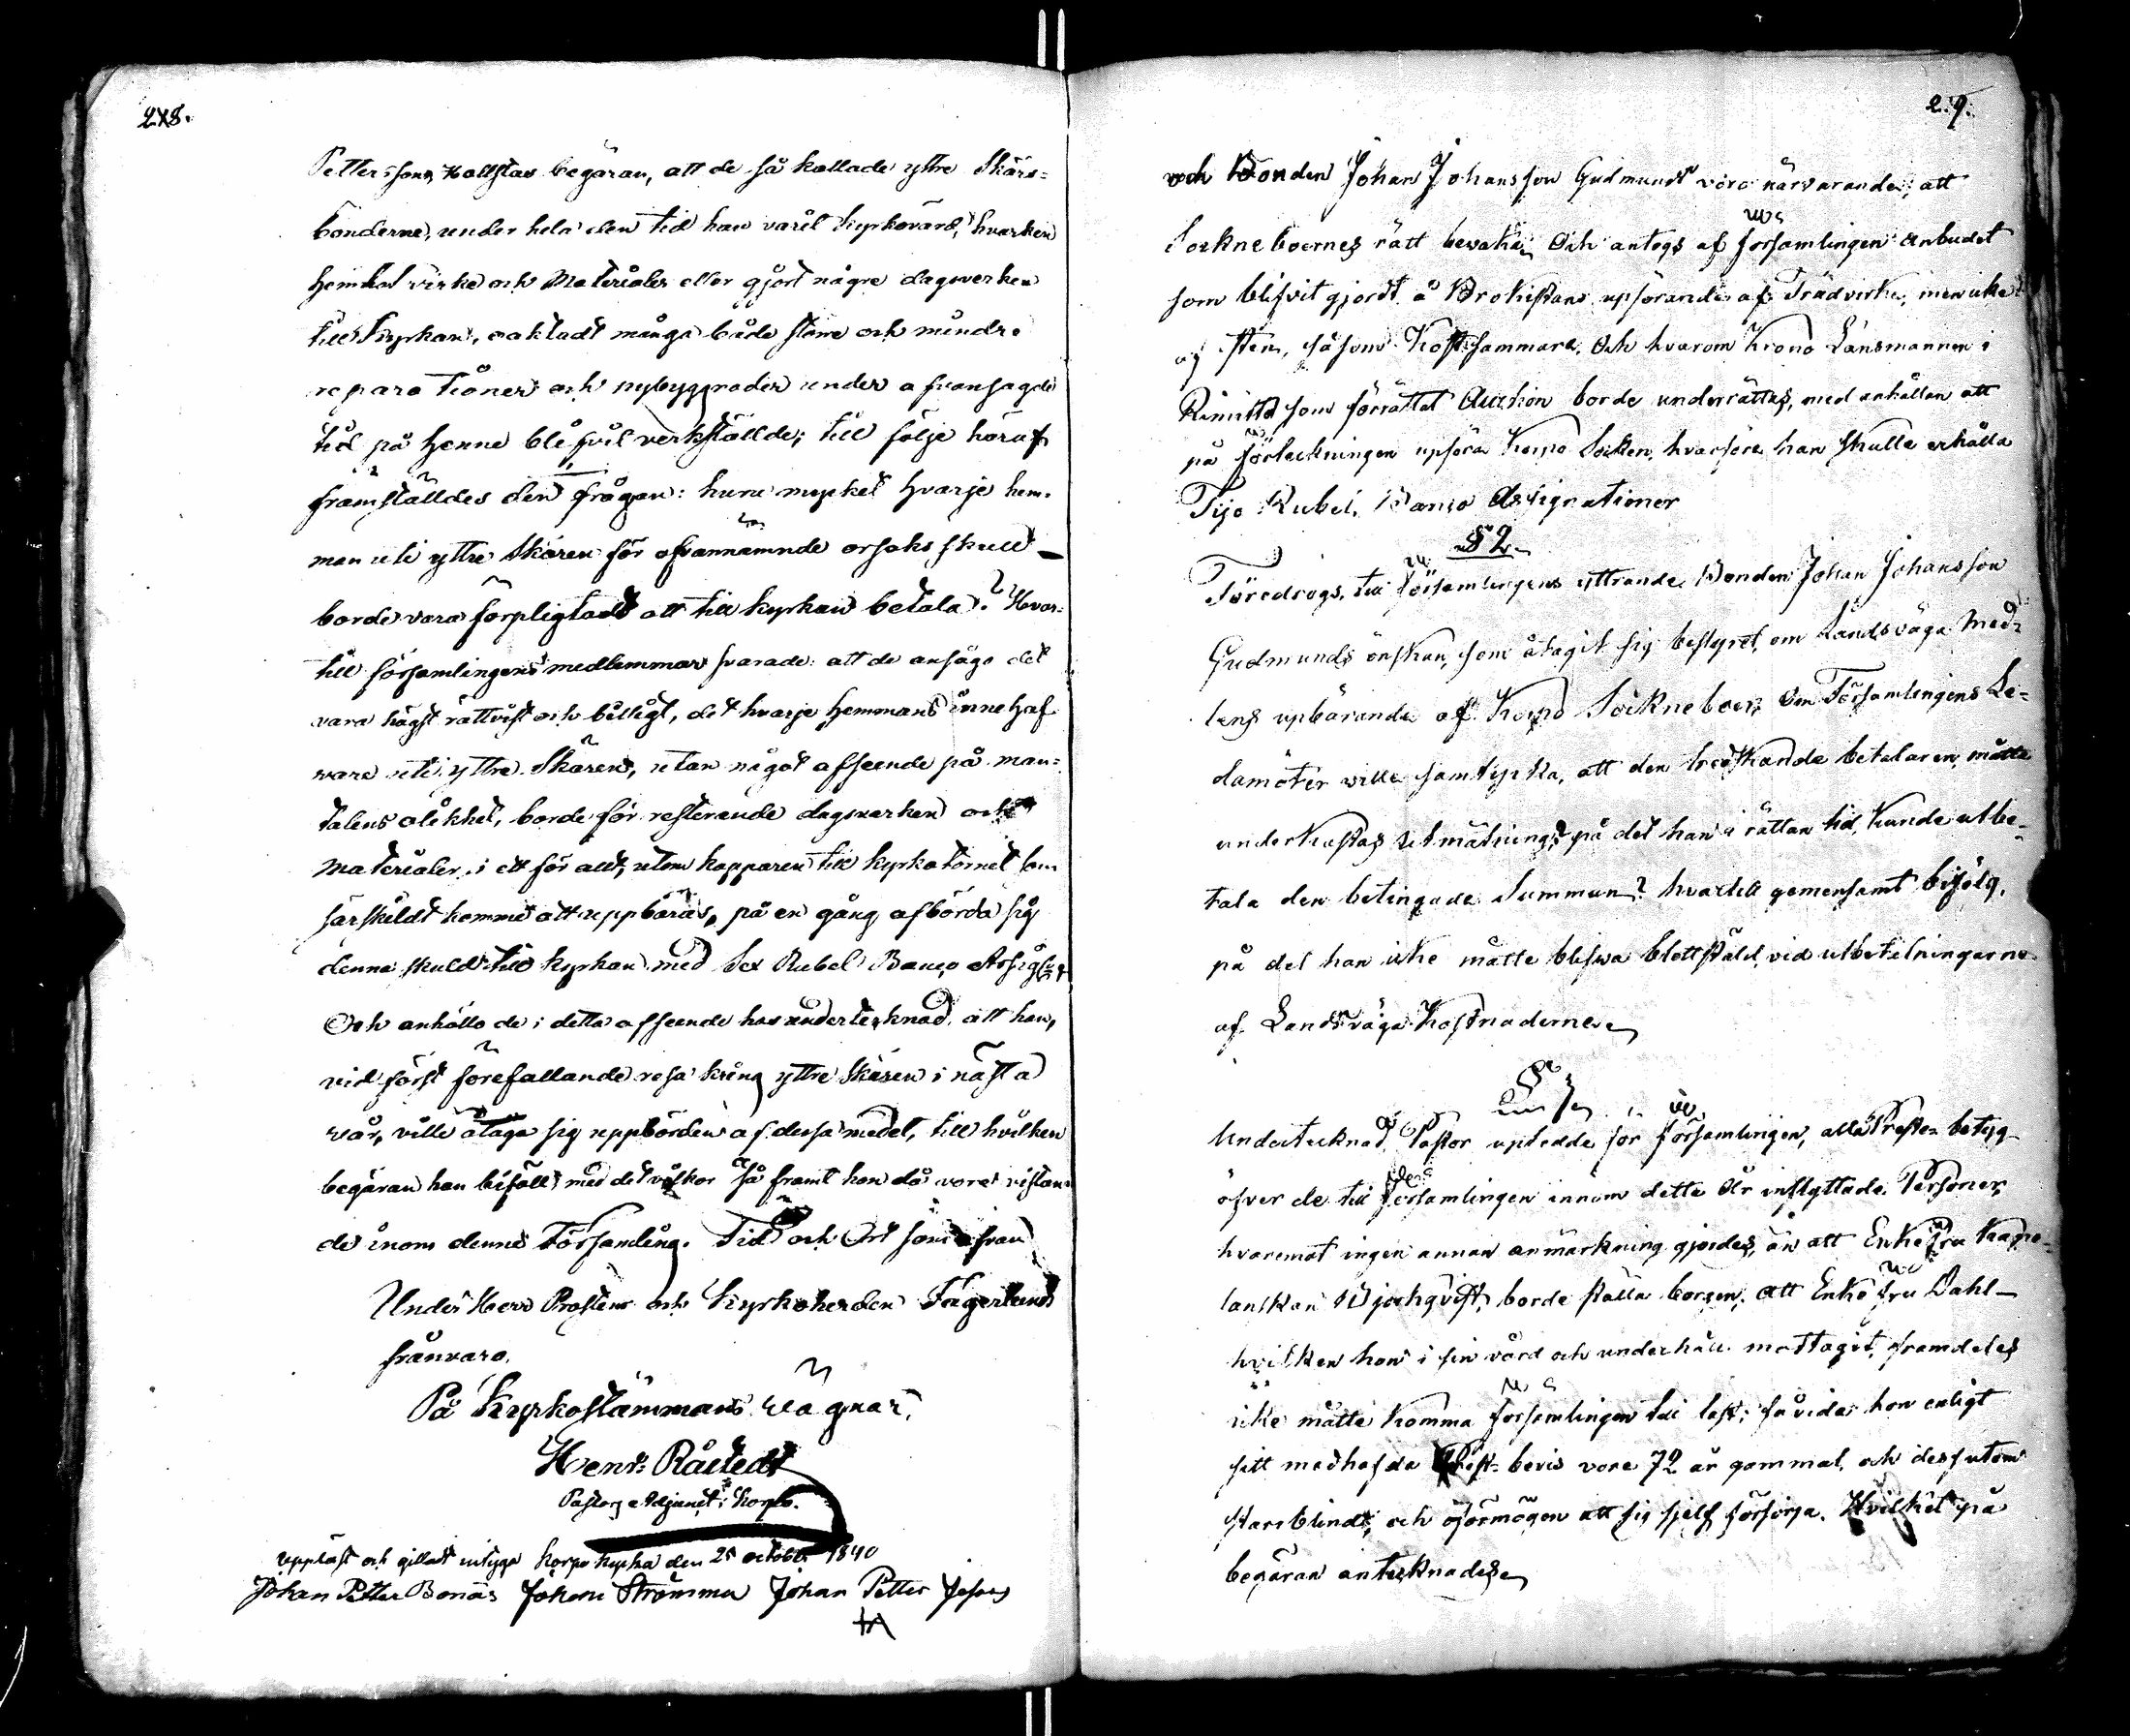 248.
Petterssons Kallstas begäran, att de så kallade yttre Skärs-
bönderne, under hela den tid han varit kyrkovärd, hvarken
hemtat virke och Materialer eller gjort några dagsverken
till Kyrkan, oaktadt många både större och mindre
reparationer och nybyggnader under afvansagde
tid på henne blifvit verkställde; till följe häraf
framställdes den frågan: huru mycket hvarje hem-
man uti yttre Skären för ofvannämnde orsaks skull
borde vara förpligtadt att till kyrkan betala? Hvar-
till församlingens medlemmar svarade: att de ansågo det
vara högst rättvist och billigt, det hvarje Hemmans innehaf-
vare uti yttre Skären, utan något afseende på man-
talens olikhet, borde för resterande dagsverken och
Materialer, i ett för allt, utom kopparen till kyrkotornet som
särskildt komme att uppbäras, på en gång afbörda sig
denna skuld till kyrkan med Sex Rubel Banco Assign:
Och anhöllo de i detta afseende hos undertecknad, att han,
vid först förefallande resa kring yttre Skären i nästa
vår, ville åtaga sig uppbörden af dessa medel, till hvilken
begäran han biföll med det vilkor så framt han då vore vistan-
de inom denne Församling. Tid och Ort som ofvan
Under Herr Prosten och Kyrkoherden Fagerlunds
frånvaro.
På Kyrkostämmans vägnar,
Henr: Råstedt
Pastors Adjunct i Korpo.
Uppläst och gilladt intyga Korpo Kyrka den 25 october 1840
Johan Petter Bonäs Johan Strömma Johan Petter
och Bonden Johan Johansson Gudmunds voro närvarande, att
Sockneboernes rätt bevaka. Och antogs af församlingen anbudet
som blifvit gjordt å Brokistans upförande af Trädvirke, men icke
af sten, såsom Kostsammare. Och hvarom Krono Länsmannen i
Rimitto som förrättat Auction borde underrättas, med anhållan att
på förteckningen upföra Korpo Socken, hvarföre han skulle erhålla
Tijo Rubel Banco Assignationer
§ 2
Föredrogs, till församlingens yttrande, Bonden Johan Johansson
Gudmunds önskan, som åtagit sig bestyret, om Landsväga Med-
lens upbärande af Korpo Sockneboer, Om Församlingens Le-
damöter ville samtycka, att den tredskande betalaren måtte
underkastas Utmätning, på det han i rättan tid, kunde utbe-
tala den betingade Summan? hvartill gemensamt biföls,
på det han icke måtte blifva blottstäld, vid utbetalningarne
af Landsväga Kostnaderne
Undertecknad, Pastor uptedde för församlingen, alla Preste-betyg
öfver de till församlingen innom dette År inflyttade Personer,
hvaremot ingen annan anmärkning gjordes, än att Enkefru Kape-
lanskan Björkqvist, borde ställa borgen, att Enkefru Dahl
hvilken hon i sin vård och underhåll mottagit, framdeles
icke måtte komma församlingen till last; såvida hon enligt
sitt medhafda Prest-bevis vore 72 år gammal, och dessutom
starrblindt, och oförmögen att sig sjelf försörja. Hvilket på
begäran antecknades